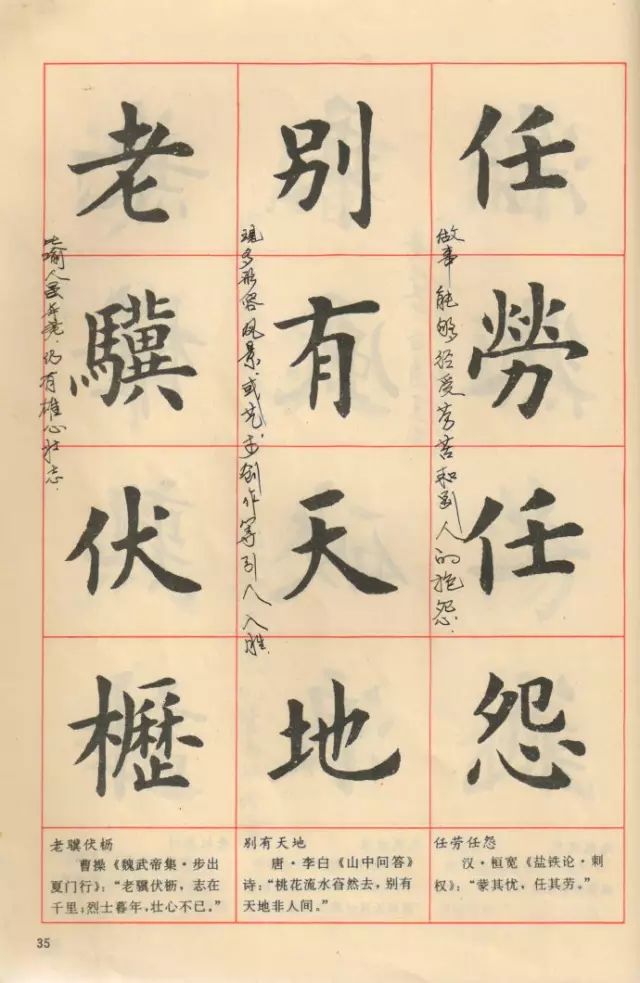 任勞任怨
做事能够经受劳苦和别人的抱怨.
别有天地
现多形容风景.或艺术创作等引人入胜.
老驥伏櫪
比喻人虽年老.仍有雄心壮志.
任劳任怨
汉·桓宽《盐铁论·刺
权》：“蒙其忧，任其劳。”
别有天地
唐·李白《山中问答》
诗：“桃花流水窅然去，别有
天地非人间。”
老骥伏枥
曹操《魏武帝集·步出
夏门行》：“老骥伏枥，志在
千里；烈士暮年，壮心不已。”
35